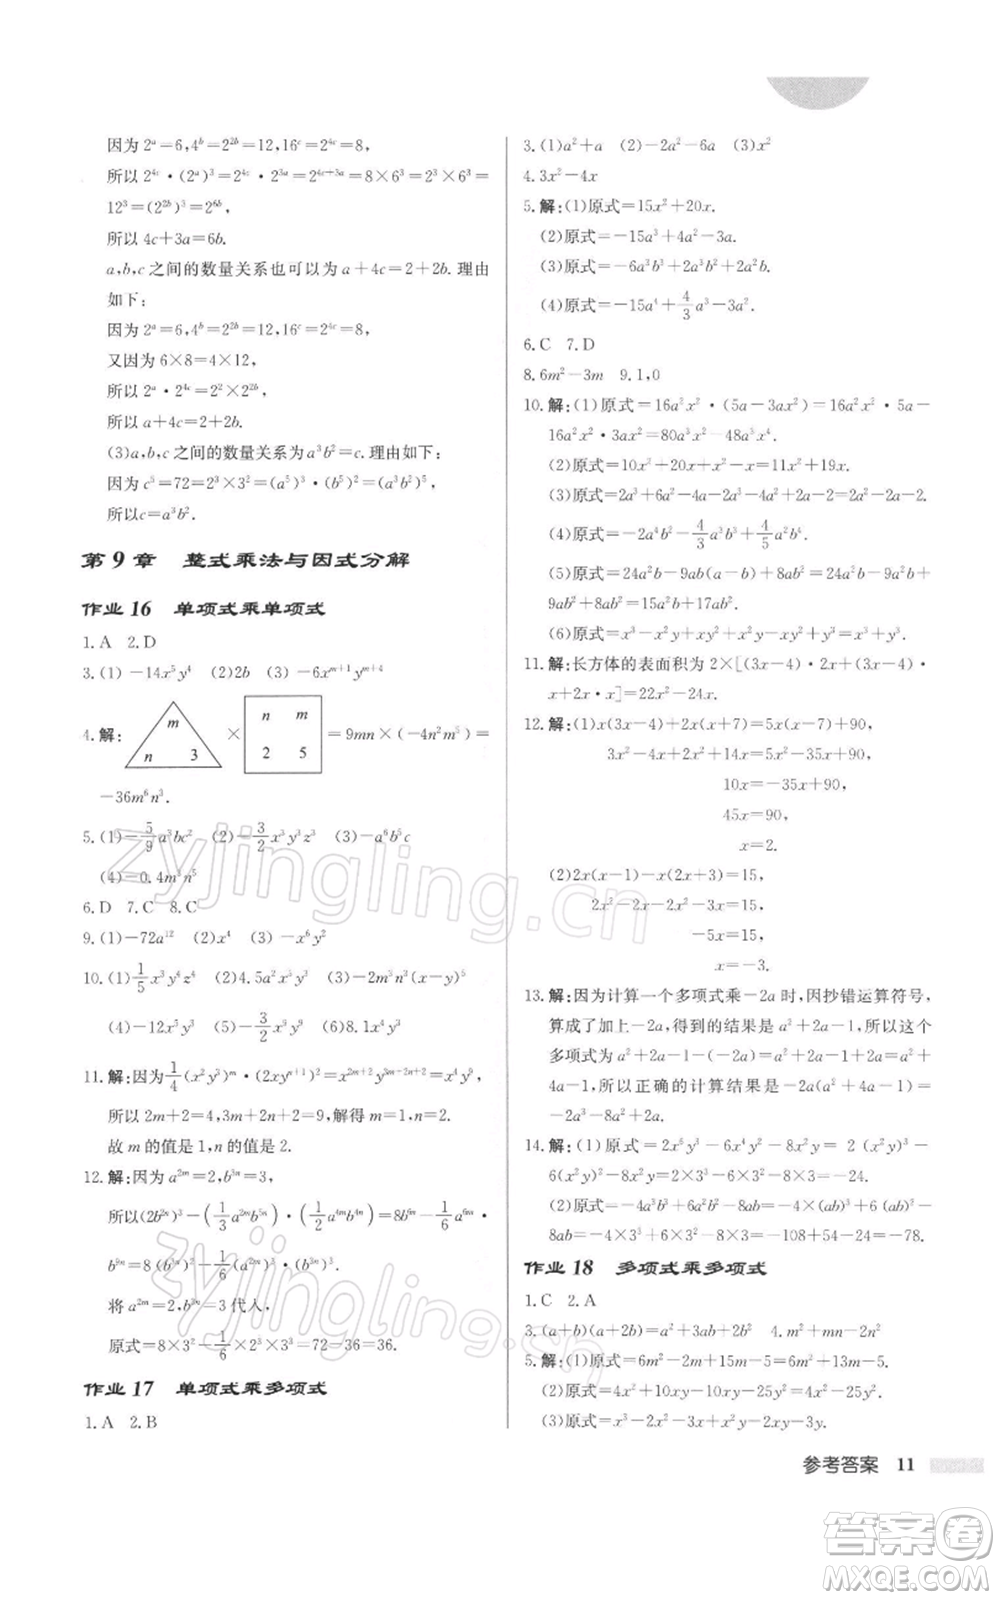 因为 2ᵃ=6,4ᵇ=2²ᵇ=12,16ᶜ=2⁴ᶜ=8,
所以 2⁴ᶜ·(2ᵃ)³=2⁴ᶜ·2³ᵃ=2⁴ᶜ⁺³ᵃ=8×6³=
12³=(2²ᵇ)³=2⁶ᵇ,
所以 4c+3a=6b.
a,b,c 之间的数量关系也可以为 a+4c=2+2b. 理由
如下:
因为 2ᵃ=6,4ᵇ=2²ᵇ=12,16ᶜ=2⁴ᶜ=8,
又因为 6×8=4×12,
所以 2ᵃ·2⁴ᶜ=2²×2²ᵇ,
所以 a+4c=2+2b.
(3)a,b,c 之间的数量关系为 a³b²=c. 理由如下:
因为 c⁵=72=2³×3²=(a⁵)³·(b⁵)²=(a³b²)⁵,
所以c=a³b².
第 9 章 整式乘法与因式分解
作业 16 单项式乘单项式
1. A 2. D
3. (1)-14x⁵y⁴ (2)2b (3)-6xᵐ⁺¹yᵐ⁺⁴
4. 解: m n 3 × n m 2 5 =9mn×(-4n²m⁵)=
-36m⁶n³.
5. (1)-5/9a³bc² (2)-3/2x³y³z³ (3)-a⁶b⁵c
(4)-0.4m³n⁵
6. D 7. C 8. C
9. (1)-72a¹² (2)x⁴ (3)-x⁶y²
10. (1)1/5x³y⁴z⁴ (2)4.5a²x⁵ (3)-2m³n³(x-y)⁵
(4)-12x⁵y⁵ (5)-3/2x³y⁹ (6)8.1x⁴y³
11. 解:因为1/4(x²y³)ᵐ·(2xyⁿ⁺¹)²=x²ᵐ⁺²y³ᵐ⁺²ⁿ⁺²=x⁴y⁹,
所以 2m+2=4,3m+2n+2=9,解得 m=1,n=2.
故 m 的值是 1,n 的值是 2.
12. 解:因为 a²ᵐ=2,b³ⁿ=3,
所以(2b²ⁿ)³-(1/3a²ᵐb⁵ⁿ)·(1/2a⁴ᵐb⁴ⁿ)=8b⁶ⁿ-1/6a⁶ᵐ·
b⁹ⁿ=8(b³ⁿ)²-1/6(a²ᵐ)³·(b³ⁿ)³.
将 a²ᵐ=2,b³ⁿ=3 代入,
原式=8×3²-1/6×2³×3³=72-36=36.
作业 17 单项式乘多项式
1. A 2. B
3. (1)a²+a (2)-2a-6a² (3)x²
4. 3x²-4x
5. 解:(1)原式=15x²+20x.
(2)原式=-15a³+4a²-3a.
(3)原式=-6a³b³+2a²b²-2a²b.
(4)原式=-15a⁴+4/3a³-3a².
6. C 7. D
8. 6m²-3m 9. 1,0
10. 解:(1)原式=16a²x²·(5a-3ax²)=16a²x²·5a-
16a²x²·3ax²=80a³x²-48a³x⁴.
(2)原式=10x²+20x-x+x²=11x²+19x.
(3)原式=2a³+6a²-4a-2a³-4a²+2a-2=2a²-2a-2.
(4)原式=-2a⁴b²-4/3a³b³+4/5a²b⁴.
(5)原式=24a²b-6ab²+8ab²-24a²b=-6ab²+8ab².
(6)原式=x³-x²y+xy²+x²y-xy²+y³=x³+y³.
11. 解:长方体的表面积为 2×[(3x-4)·2x+(3x-4)·
x+2x·x]=22x²-24x.
12. 解:(1)x(3x-4)+2x(x+7)=5x(x-7)+90,
3x²-4x+2x²+14x=5x²-35x+90,
10x=-35x+90,
45x=90,
x=2.
(2)2x(x-1)-x(2x+3)=15,
2x²-2x-2x²-3x=15,
-5x=15,
x=-3.
13. 解:因为计算一个多项式乘-2a 时,因抄错运算符号,
算成了加上-2a,得到的结果是 a²+2a-1,所以这个
多项式为 a²+2a-1-(-2a)=a²+2a-1+2a=a²+
4a-1,所以正确的计算结果是-2a(a²+4a-1)=
-2a³-8a²+2a.
14. 解:(1)原式=2x⁶y³-6x⁴y²-8x²y=2(x²y)³-
6(x²y)²-8x²y=2×3³-6×3²-8×3=-24.
(2)原式=-4a³b³+6a²b²-8ab=-4(ab)³+6(ab)²-
8ab=-4×3³+6×3²-8×3=-108+54-24=-78.
作业 18 多项式乘多项式
1. C 2. A
3. (a+b)(a+2b)=a²+3ab+2b² 4. m²+mn-2n²
5. 解:(1)原式=6m²-2m-15m+5=6m²-17m+5.
(2)原式=4x²+10xy-10xy-25y²=4x²-25y².
(3)原式=x³-2x²-xy+2y-x³+xy=-2x²+2y.
参考答案 11
zyjingling.cn
zyjingling.cn
答案卷
MXQE.COM